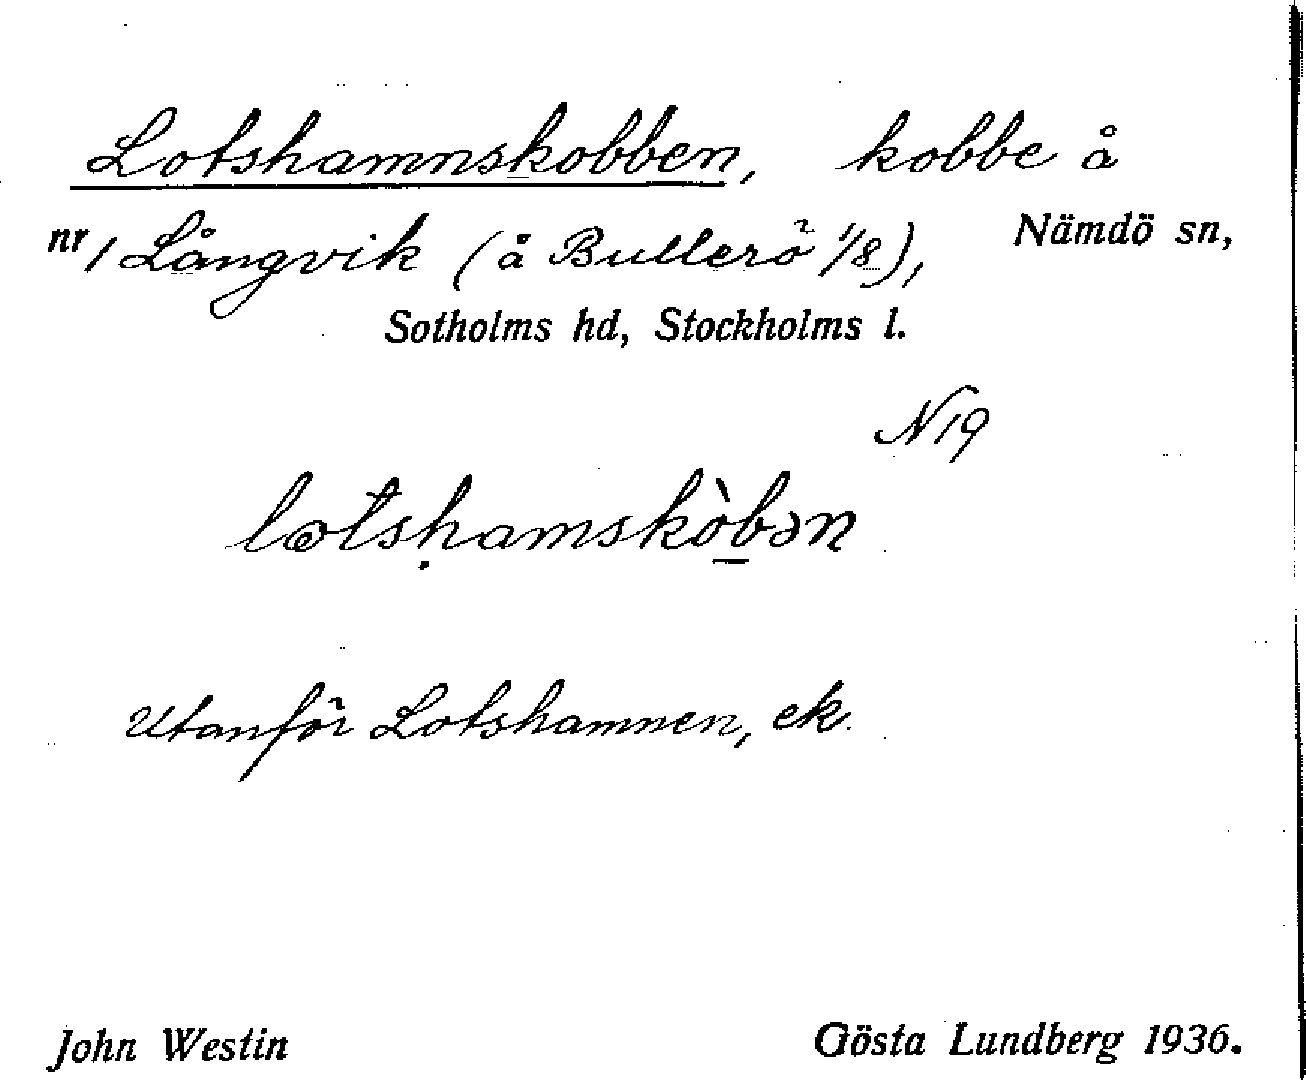 Lotshamnskobben, kobbe å
nr 1 Långvik (å Bullerö 1/8), Nämdö sn,
Sotholms hd, Stockholms l.
N 19
lotshamskòbən
Utanför Lotshamnen, ek.
John Westin Gösta Lundberg 1936.